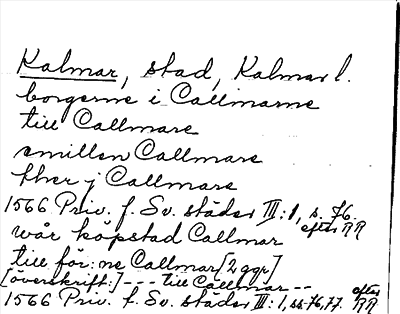 Kalmar, stad, Kalmar l.
borgerne i Callmarne
till Callmare
emillan Callmare
hher j Callmare
1566 Priv. f. Sv. städer III: 1, s. 76. efter RR
wår köpstad Callmar
till för:ne Callmar [2 ggr]
[överskrift:] - - - till Callmar - -
1566 Priv. f. Sv. städer III: 1, ss. 76, 77. efter RR